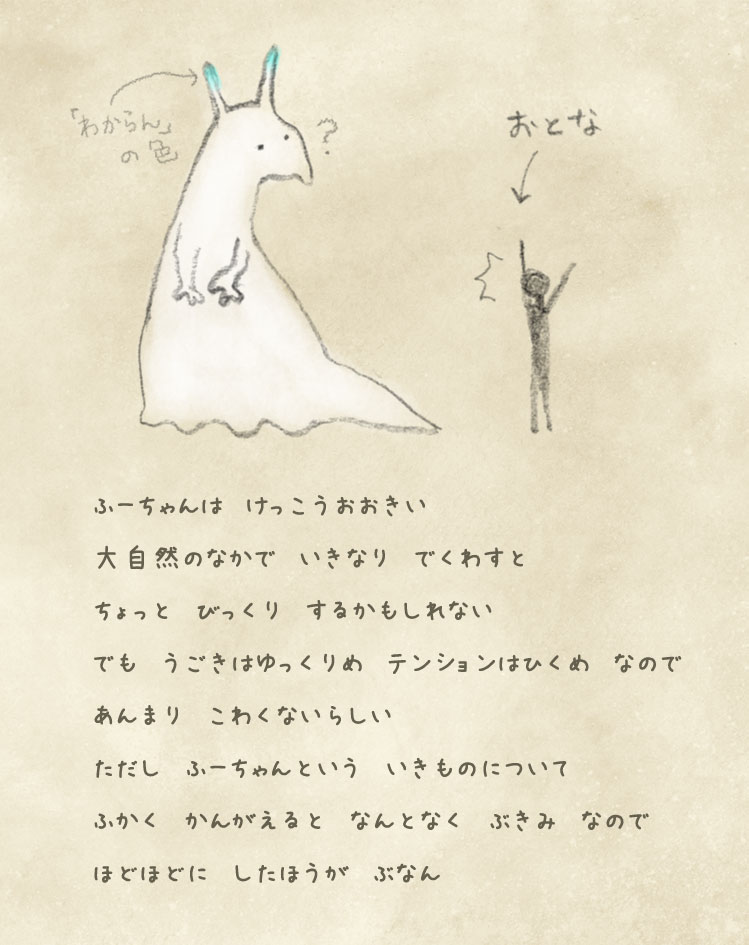 「わからん」
の色
?
おとな
ふーちゃんは　けっこうおおきい
大自然のなかで　いきなり　でくわすと
ちょっと　びっくり　するかもしれない
でも　うごきはゆっくりめ　テンションはひくめ　なので
あんまり　こわくないらしい
ただし　ふーちゃんという　いきものについて
ふかく　かんがえると　なんとなく　ぶきみ　なので
ほどほどに　したほうが　ぶなん